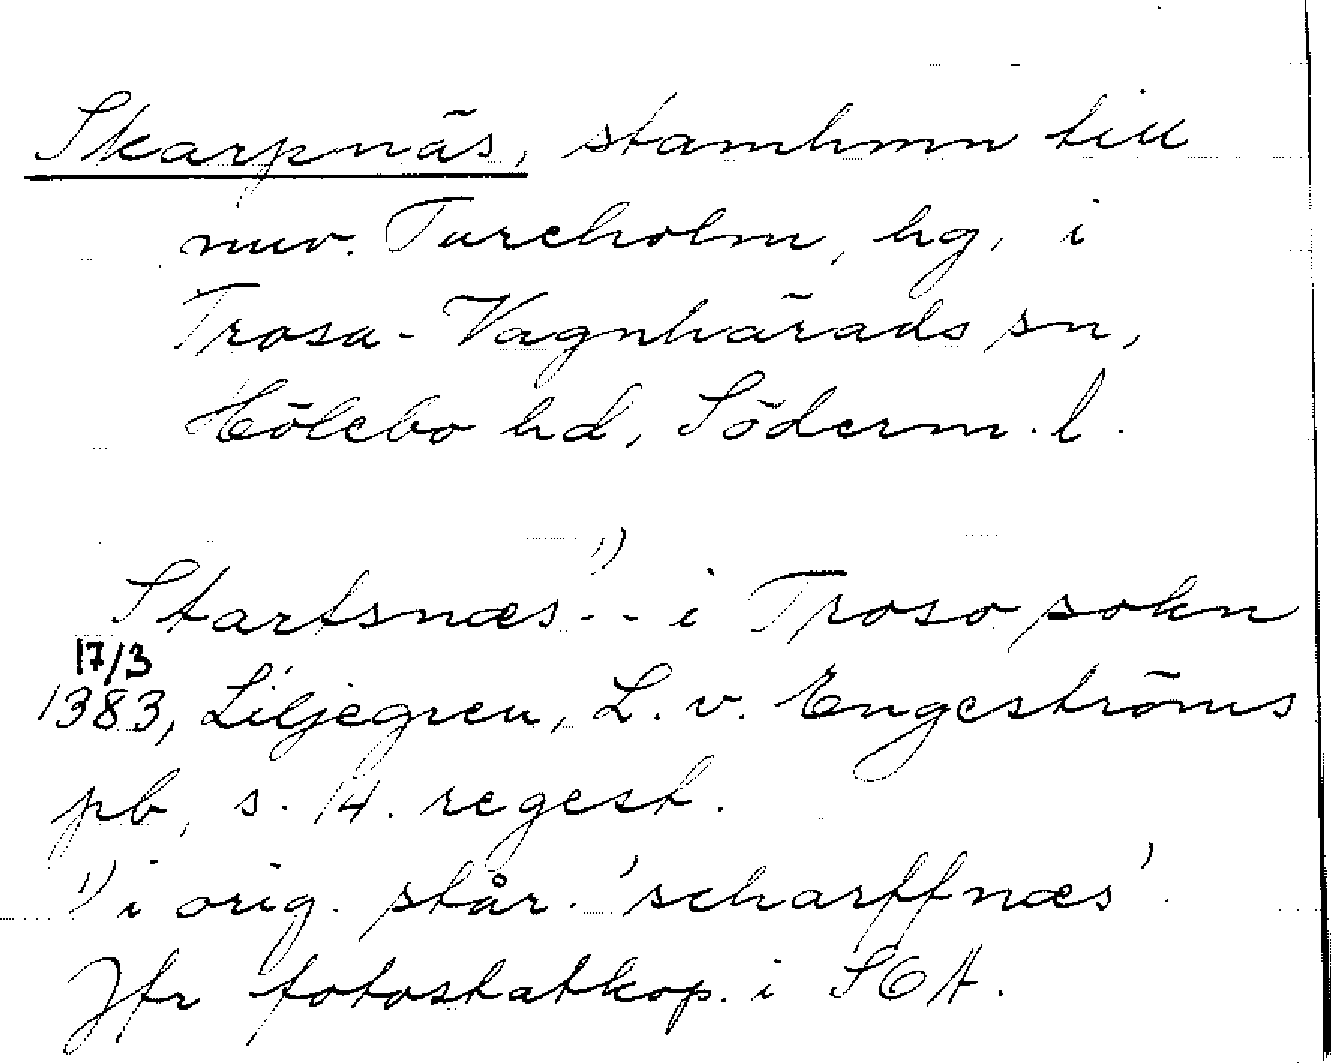 Skarpnäs, stamhmn till
nuv. Tureholm, hg, i
Trosa-Vagnhärads sn,
Hölebo hd, Söderm. l.
Startsnæs¹⁾ -- i Troso sokn
17/3
1383, Liljegren, L. v. Engeströms
pb, s. 14. regest.
¹⁾ i orig. står 'scharffnæs'.
Jfr fotostatkop. i SOA.